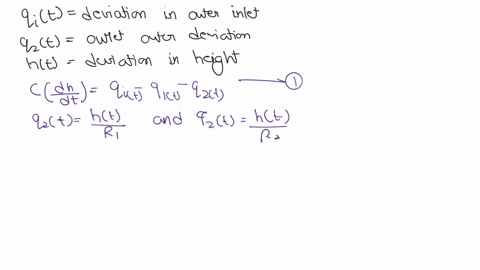 qi(t) = deviation in outer inlet
q2(t) = outlet outer deviation
h(t) = deviation in height
C(dh/dt) = qi(t) - q1(t) - q2(t) ——— ①
q2(t) = h(t)/R1 and q2(t) = h(t)/R2